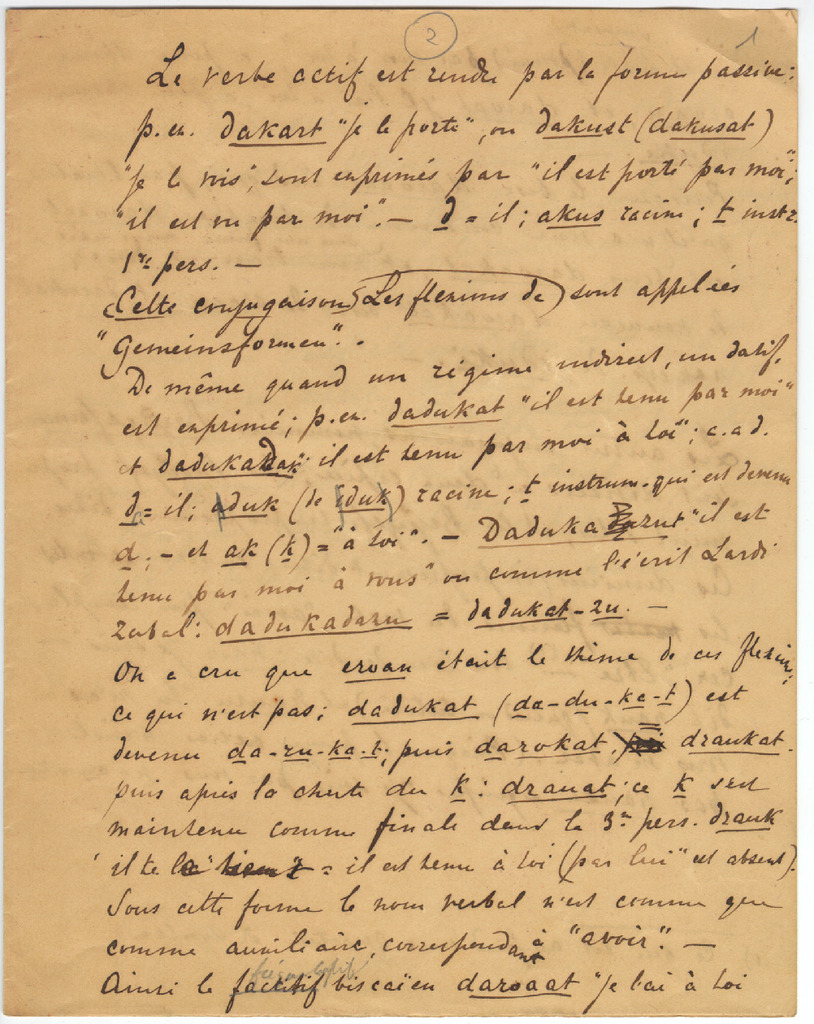 2
1
Le verbe actif est rendu par la forme passive;
p.ex. dakart "je le porte", ou dakust (dakusat)
"je le vois", sont exprimés par "il est porté par moi",
"il est vu par moi". — d = il; akus racine; t instr.
1re pers. —
(Cette conjugaison) (Les flexions de) sont appelées
"Gemeinsformen".
De même quand un régime indirect, un datif,
est exprimé; p.ex. dadukat "il est tenu par moi"
et dadukadak il est tenu par moi à toi"; c.a d.
d = il; aduk (de iduk) racine; t instrum. qui est devenu
d; — et ak (k) = "à toi". — Daduka "il est
tenu par moi à vous" ou comme l'écrit Lardi
zabal: dadukadazu = dadukat-zu. —
On a cru que eroan était le thème de ces flexions,
ce qui n'est pas; dadukat (da-du-ka-t) est
devenu da-ru-ka-t; puis darokat, draukat.
puis après la chute du k: drauat; ce k s'est
maintenu comme finale dans la 3me pers. drauk
il te le = il est tenu à toi (par lui" est absent).
Sous cette forme le nom verbal n'est connu que
comme auxiliaire, correspondant à "avoir". —
Ainsi le biscaïen daroaat "je l'ai à toi